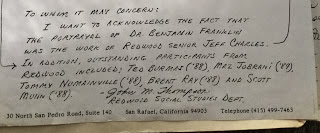 TO WHOM IT MAY CONCERN:
I WANT TO ACKNOWLEDGE THE FACT THAT
THE PORTRAYAL OF DR. BENJAMIN FRANKLIN
WAS THE WORK OF REDWOOD SENIOR JEFF CHARLES.
IN ADDITION, OUTSTANDING PARTICIPANTS FROM
REDWOOD INCLUDED: TED BURMAS ('89), MAZ JOBRANI ('89)
TOMMY NUMAINVILLE ('88), BRENT RAY ('88) AND SCOTT
('88). - John M. Thompson
REDWOOD SOCIAL STUDIES DEPT.
30 North San Pedro Road, Suite 140 San Rafael, California 94903 Telephone (415) 499-7463